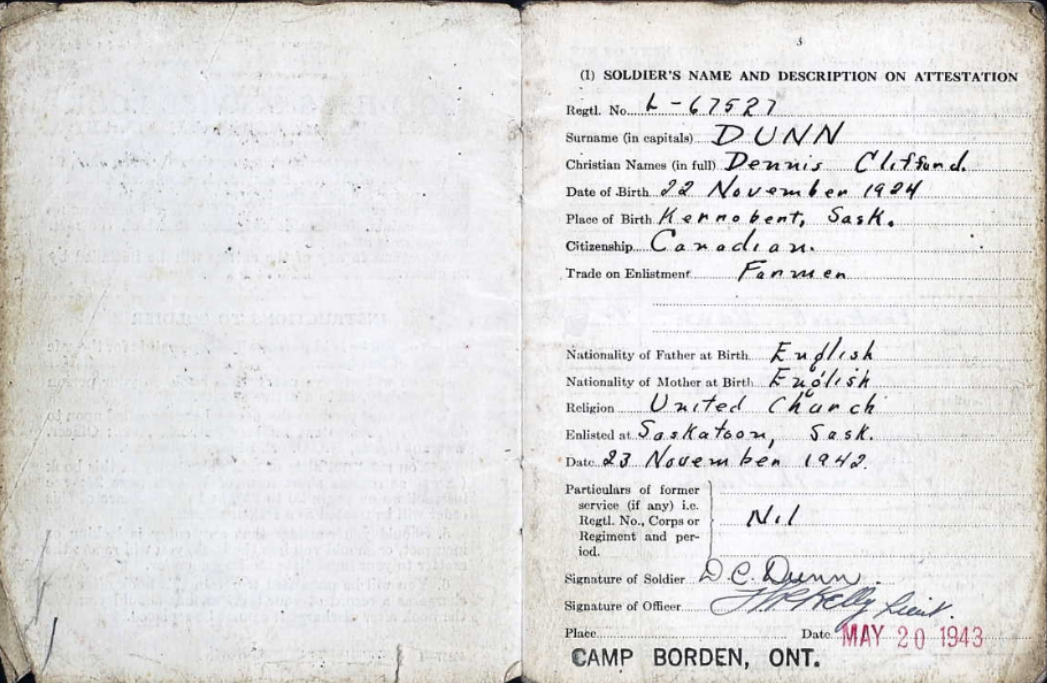 3
(I) SOLDIER'S NAME AND DESCRIPTION ON ATTESTATION
Regtl. No. L-67527
Surname (in capitals) DUNN
Christian Names (in full) Dennis Clifford.
Date of Birth 22 November 1924
Place of Birth Kennobert, Sask.
Citizenship Canadian.
Trade on Enlistment Farmer
Nationality of Father at Birth English
Nationality of Mother at Birth English
Religion United Church
Enlisted at Saskatoon, Sask.
Date 23 November 1942.
Particulars of former
service (if any) i.e.
Regtl. No., Corps or
Regiment and per-
iod.
Nil
Signature of Soldier D C. Dunn.
Signature of Officer Kelly Lieut.
Place Date MAY 20 1943
CAMP BORDEN, ONT.